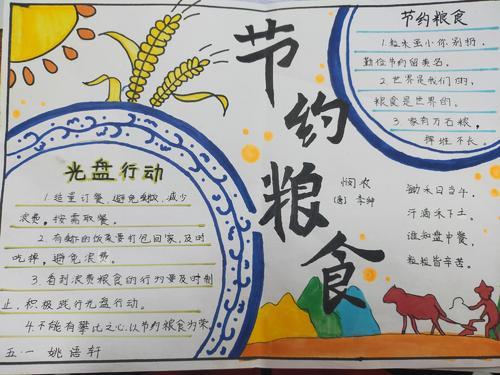 节约粮食
节约粮食
1.粒米虽小你别扔,
勤俭节约留美名。
2.世界是我们的,
粮食是世界的。
3.家有万石粮,
挥挥不长
光盘行动
1.适量订餐,避免剩餐,减少
浪费。按需取餐。
2.有剩的饭菜要打包回家,及时
吃掉,避免浪费。
3.看到浪费粮食的行为要及时制
止,积极践行光盘行动。
4.不能有攀比之心,以节约粮食为荣
五·一 姚语轩
悯农
(唐) 李绅
锄禾日当午,
汗滴禾下土。
谁知盘中餐,
粒粒皆辛苦。